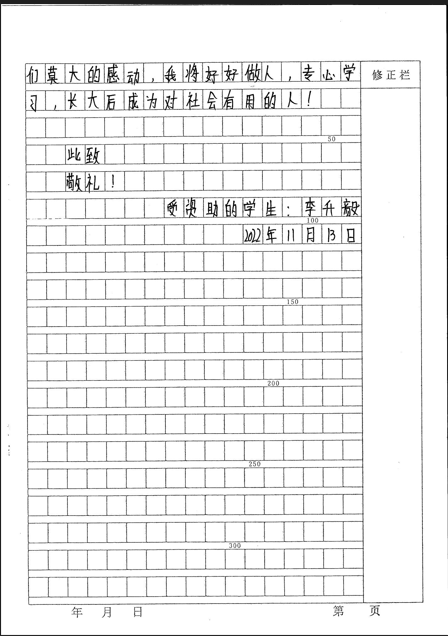 们莫大的感动，我将好好做人，专心学
修正栏
习，长大后成为对社会有用的人！
50
此致
敬礼！
受资助的学生：李升毅
100
2022年11月13日
150
200
250
300
年 月 日
第 页